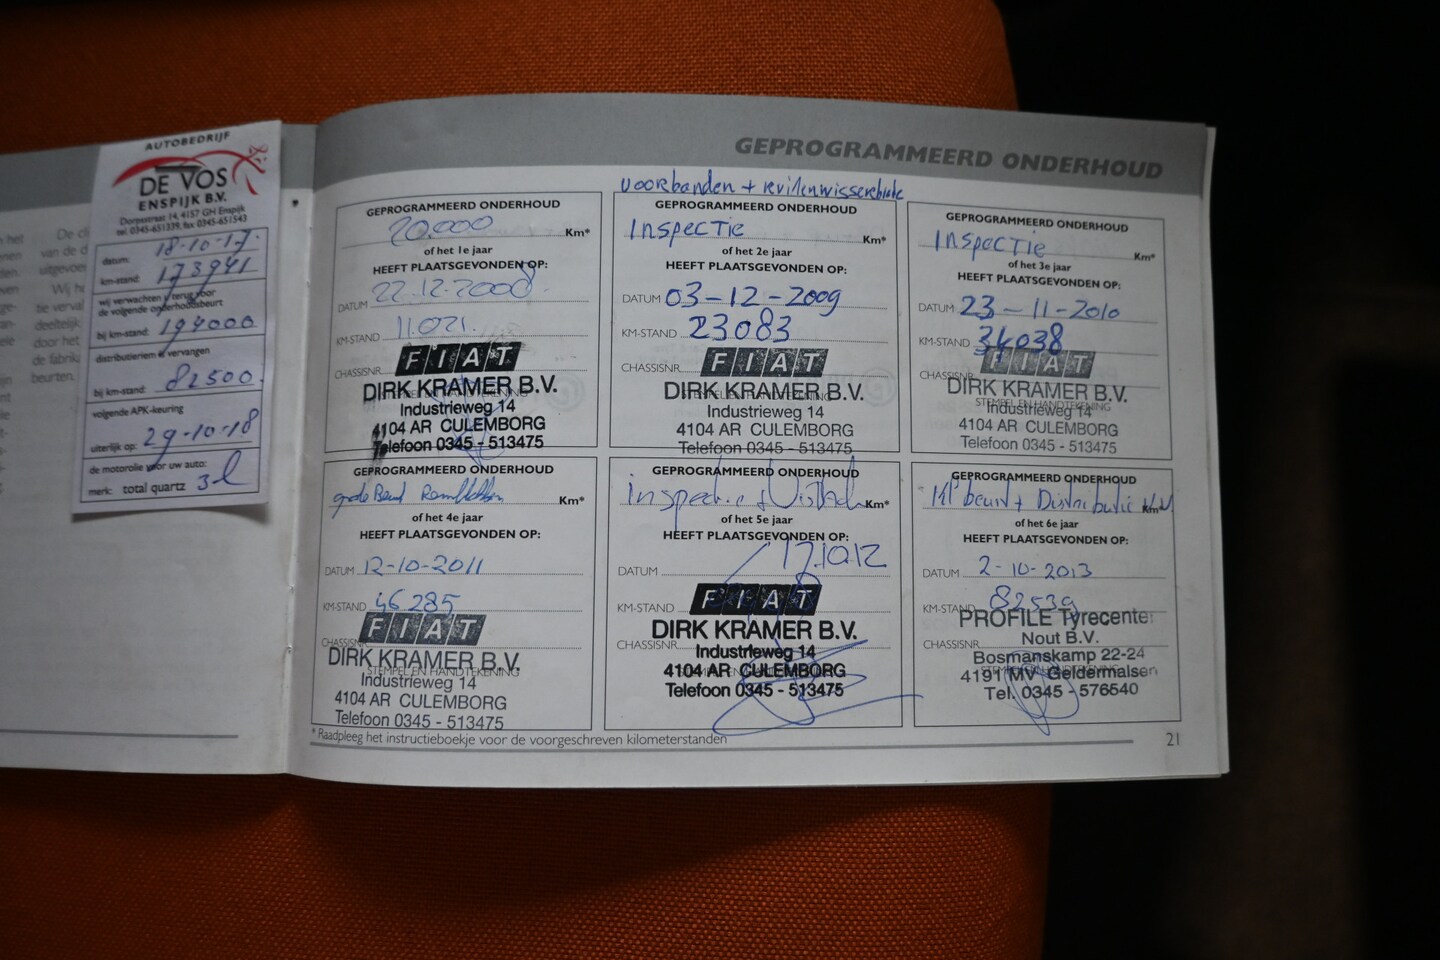 AUTOBEDRIJF
DE VOS
ENSPIJK B.V.
Dorpsstraat 14, 4157 GH Enspijk
tel. 0345-651339, fax 0345-651543
datum: 18-10-17.
km-stand: 173941
wij verwachten u terug voor
de volgende onderhoudsbeurt
bij km-stand: 194000
distributieriem is vervangen
bij km-stand: 82500
volgende APK-keuring
uiterlijk op: 29-10-18
de motorolie voor uw auto:
merk: total quartz 3l
GEPROGRAMMEERD ONDERHOUD
voorbanden +
GEPROGRAMMEERD ONDERHOUD
20.000 Km*
of het 1e jaar
HEEFT PLAATSGEVONDEN OP:
DATUM 22.12.2008
KM-STAND 11.021.
CHASSISNR.
FIAT
DIRK KRAMER B.V.
STEMPEL EN HANDTEKENING
Industrieweg 14
4104 AR CULEMBORG
Telefoon 0345 - 513475
GEPROGRAMMEERD ONDERHOUD
Inspectie Km*
of het 2e jaar
HEEFT PLAATSGEVONDEN OP:
DATUM 03-12-2009
KM-STAND 23083
CHASSISNR.
FIAT
DIRK KRAMER B.V.
STEMPEL EN HANDTEKENING
Industrieweg 14
4104 AR CULEMBORG
Telefoon 0345 - 513475
GEPROGRAMMEERD ONDERHOUD
Inspectie Km*
of het 3e jaar
HEEFT PLAATSGEVONDEN OP:
DATUM 23-11-2010
KM-STAND 34038
CHASSISNR.
FIAT
DIRK KRAMER B.V.
STEMPEL EN HANDTEKENING
Industrieweg 14
4104 AR CULEMBORG
Telefoon 0345 - 513475
GEPROGRAMMEERD ONDERHOUD
grote Beurt Remblokken Km*
of het 4e jaar
HEEFT PLAATSGEVONDEN OP:
DATUM 12-10-2011
KM-STAND 46285
CHASSISNR.
FIAT
DIRK KRAMER B.V.
STEMPEL EN HANDTEKENING
Industrieweg 14
4104 AR CULEMBORG
Telefoon 0345 - 513475
GEPROGRAMMEERD ONDERHOUD
inspectie + Km*
of het 5e jaar
HEEFT PLAATSGEVONDEN OP:
DATUM 17.10.12
KM-STAND
CHASSISNR.
FIAT
DIRK KRAMER B.V.
Industrieweg 14
4104 AR CULEMBORG
Telefoon 0345 - 513475
GEPROGRAMMEERD ONDERHOUD
Kl beurt + Distributie Km*
of het 6e jaar
HEEFT PLAATSGEVONDEN OP:
DATUM 2-10-2013
KM-STAND 82539
PROFILE Tyrecenter
CHASSISNR.
Nout B.V.
Bosmanskamp 22-24
STEMPEL EN HANDTEKENING
4191 MV Geldermalsen
Tel. 0345 - 576640
* Raadpleeg het instructieboekje voor de voorgeschreven kilometerstanden
21